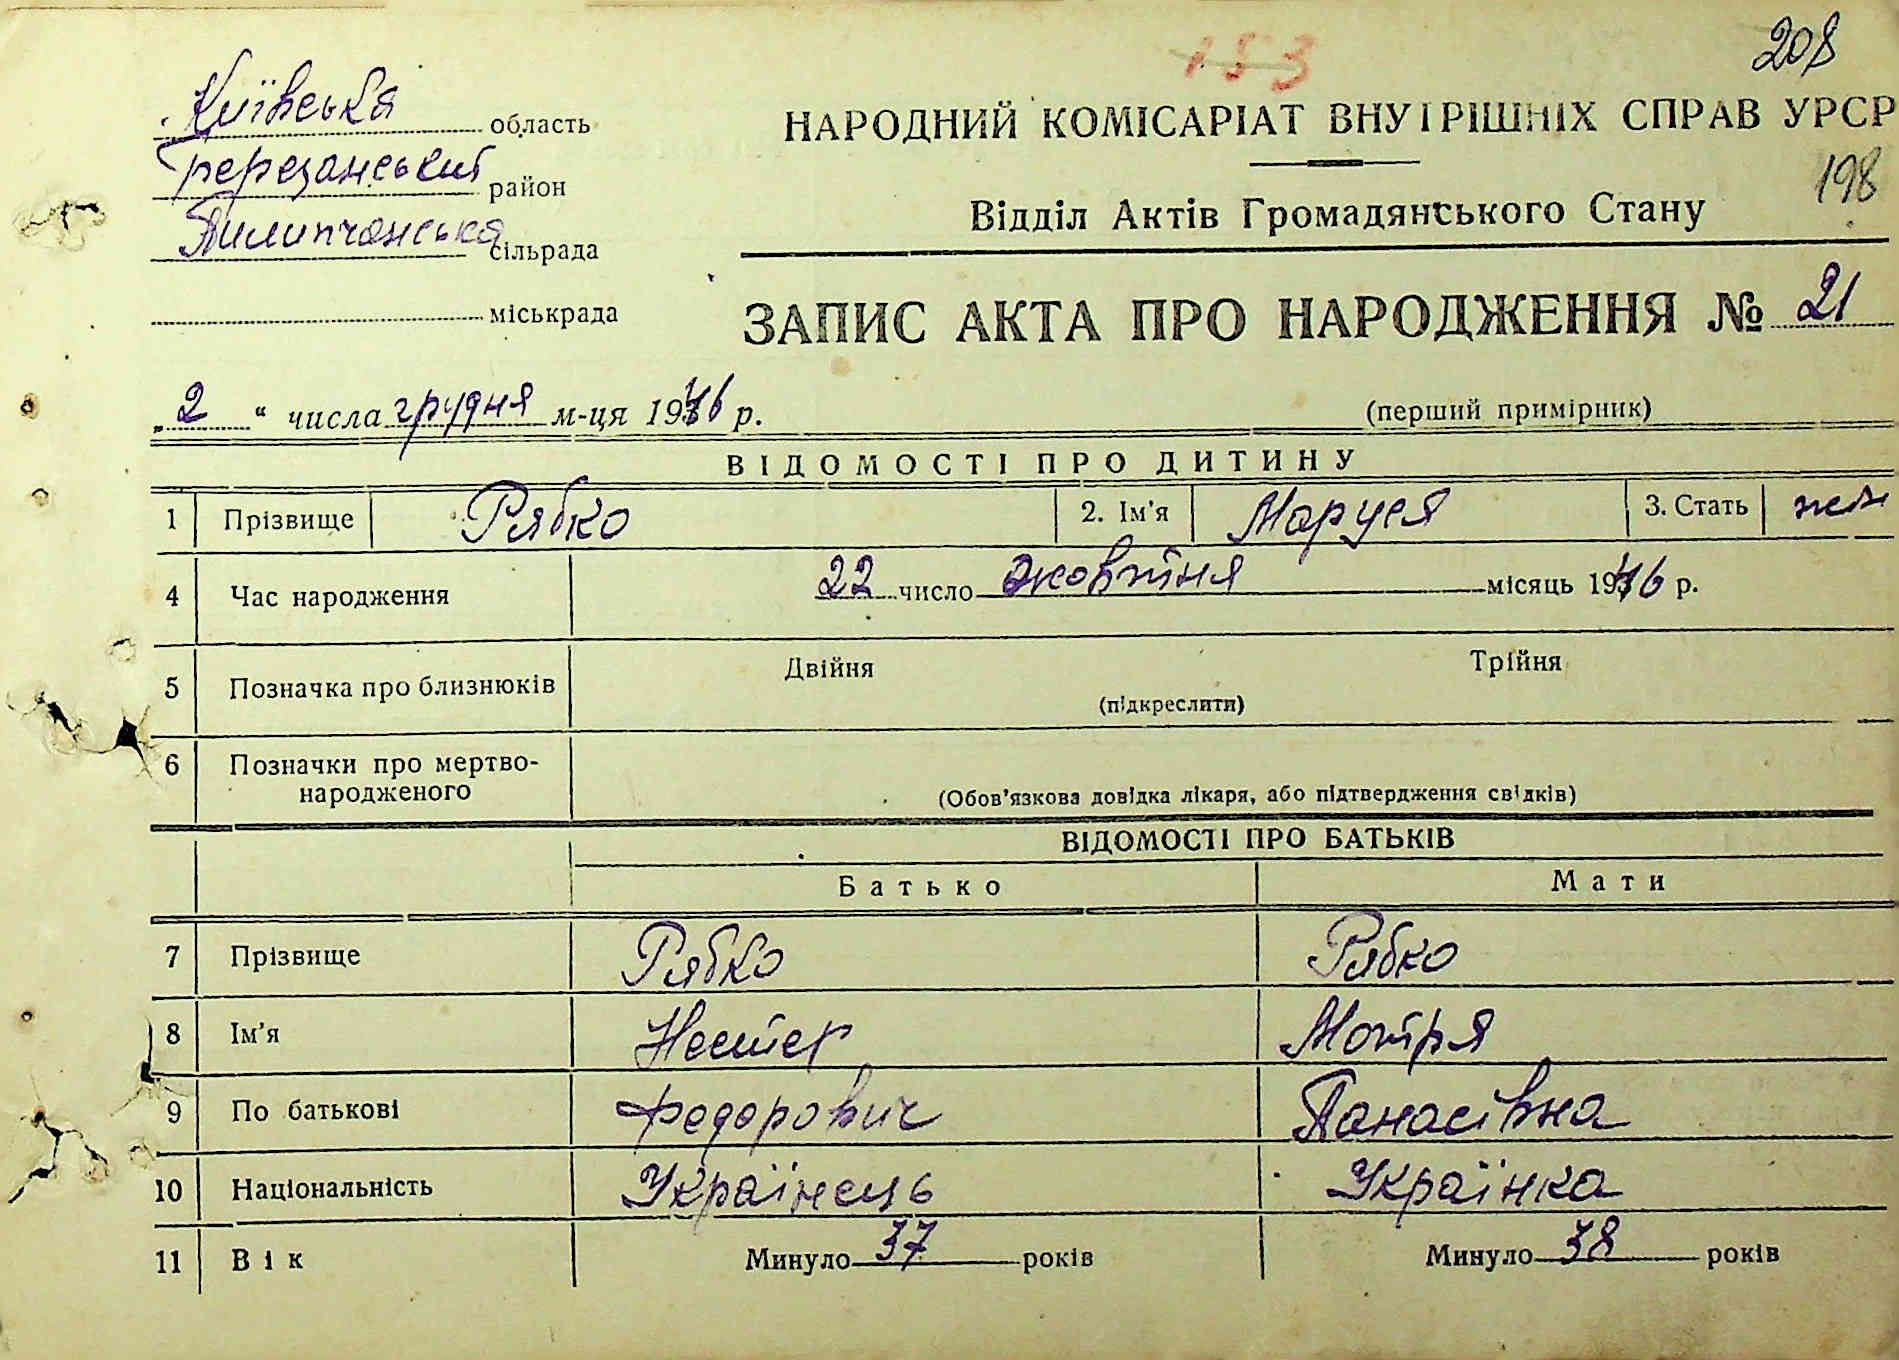 153
208
Київська область
НАРОДНИЙ КОМІСАРІАТ ВНУТРІШНІХ СПРАВ УРСР
Березанський район
198
Відділ Актів Громадянського Стану
Пилипчанська сільрада
міськрада
ЗАПИС АКТА ПРО НАРОДЖЕННЯ № 21
„2“ числа грудня м-ця 1946 р.
(перший примірник)
ВІДОМОСТІ ПРО ДИТИНУ
1 Прізвище Рябко 2. Ім'я Маруся 3. Стать жін
4 Час народження 22 число жовтня місяць 1946 р.
5 Позначка про близнюків Двійня Трійня
(підкреслити)
6 Позначки про мертво-
народженого
(Обов'язкова довідка лікаря, або підтвердження свідків)
ВІДОМОСТІ ПРО БАТЬКІВ
Батько Мати
7 Прізвище Рябко Рябко
8 Ім'я Нестер Мотря
9 По батькові Федорович Панасівна
10 Національність Українець Українка
11 Вік Минуло 37 років Минуло 38 років